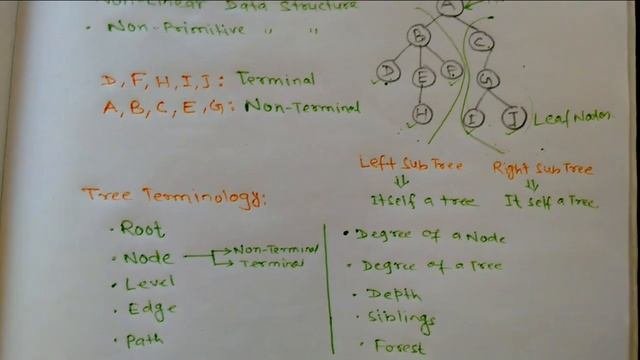 Non-Linear Data Structure
· Non-Primitive " "
A
B
C
D
E
F
G
H
I
J
Leaf Nodes
D, F, H, I, J : Terminal
A, B, C, E, G : Non-Terminal
Left Sub Tree
Right Sub Tree
Itself a tree
It self a Tree
Tree Terminology:
· Root
· Node → Non-Terminal
→ Terminal
· Level
· Edge
· Path
• Degree of a Node
· Degree of a Tree
· Depth
· Siblings
· Forest